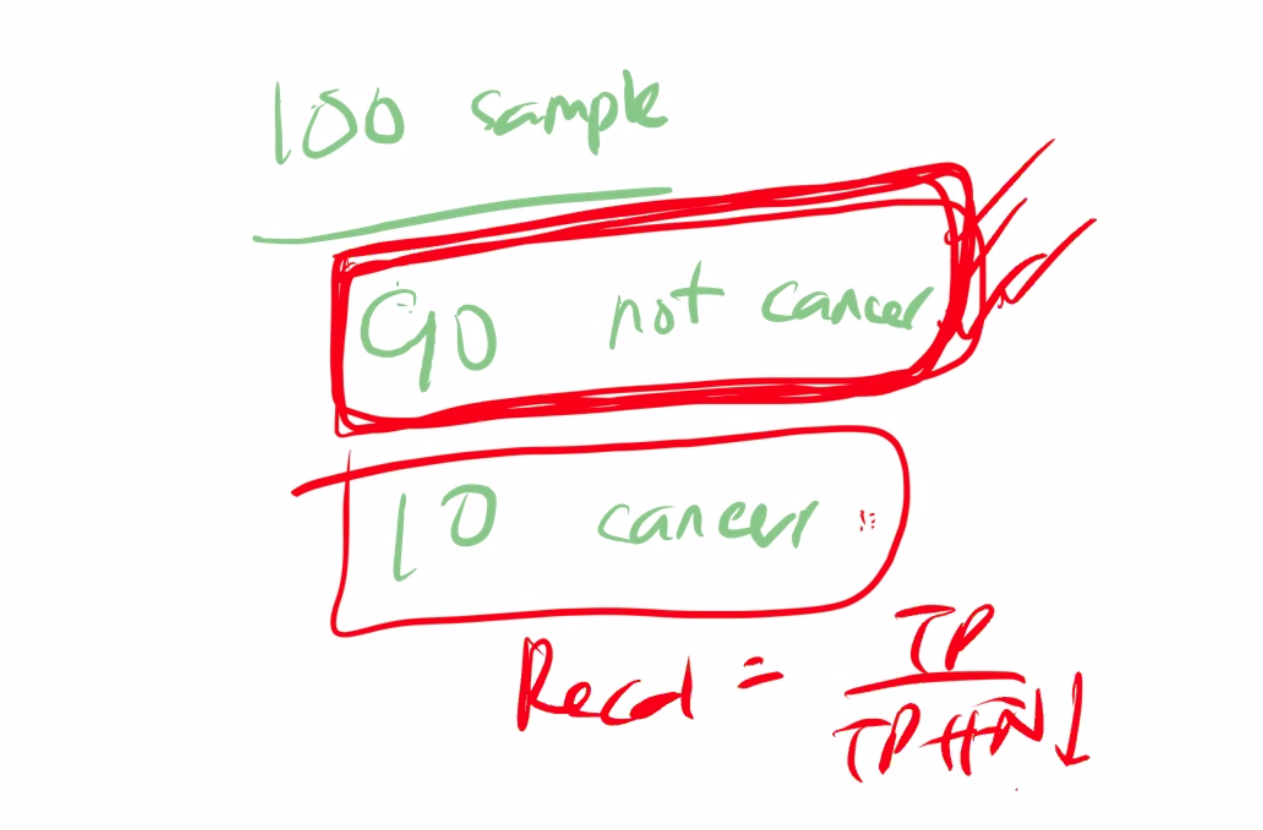 100 sample
90 not cancer
10 cancer
Recal = TP
TP+FN↓